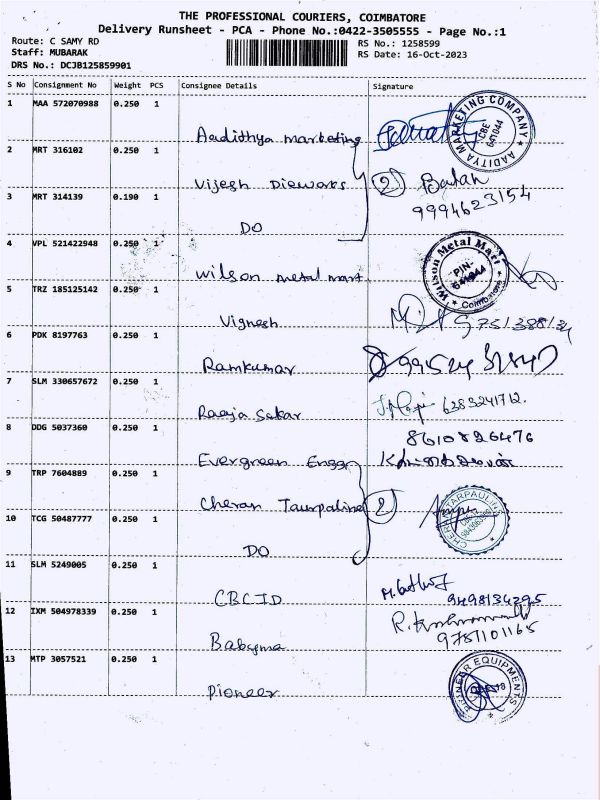 THE PROFESSIONAL COURIERS, COIMBATORE
Delivery Runsheet - PCA - Phone No.:0422-3505555 - Page No.:1
Route: C SAMY RD
RS No.: 1258599
Staff: MUBARAK
RS Date: 16-Oct-2023
DRS No.: DCJB125859901
S No Consignment No Weight PCS Consignee Details Signature
1 MAA 572070988 0.250 1
Aadithya marketing
ADITYA MARKETING COMPANY
CBE
641044
2 MRT 316102 0.250 1
Vijesh Dieworks
2 Balan
9994623154
3 MRT 314139 0.190 1
DO
4 VPL 521422948 0.250 1
Wilson metal mart
Wilson Metal Mart
PIN-
Coimbatore
5 TRZ 185125142 0.250 1
Vignesh
6 PDK 8197763 0.250 1
Ramkumar
7 SLM 330657672 0.250 1
Raaja Sekar
6383241712.
8 DDG 5037360 0.250 1
8610826476
Evergreen Enggr
9 TRP 7604889 0.250 1
Cheran Taurpaline
2
TARPAULIN
10 TCG 50487777 0.250 1
DO
11 SLM 5249005 0.250 1
CBCID
9498134295
12 IXM 504978339 0.250 1
Babyma
9751101165
13 MTP 3057521 0.250 1
Pioneer
PIONEAR EQUIPMENTS